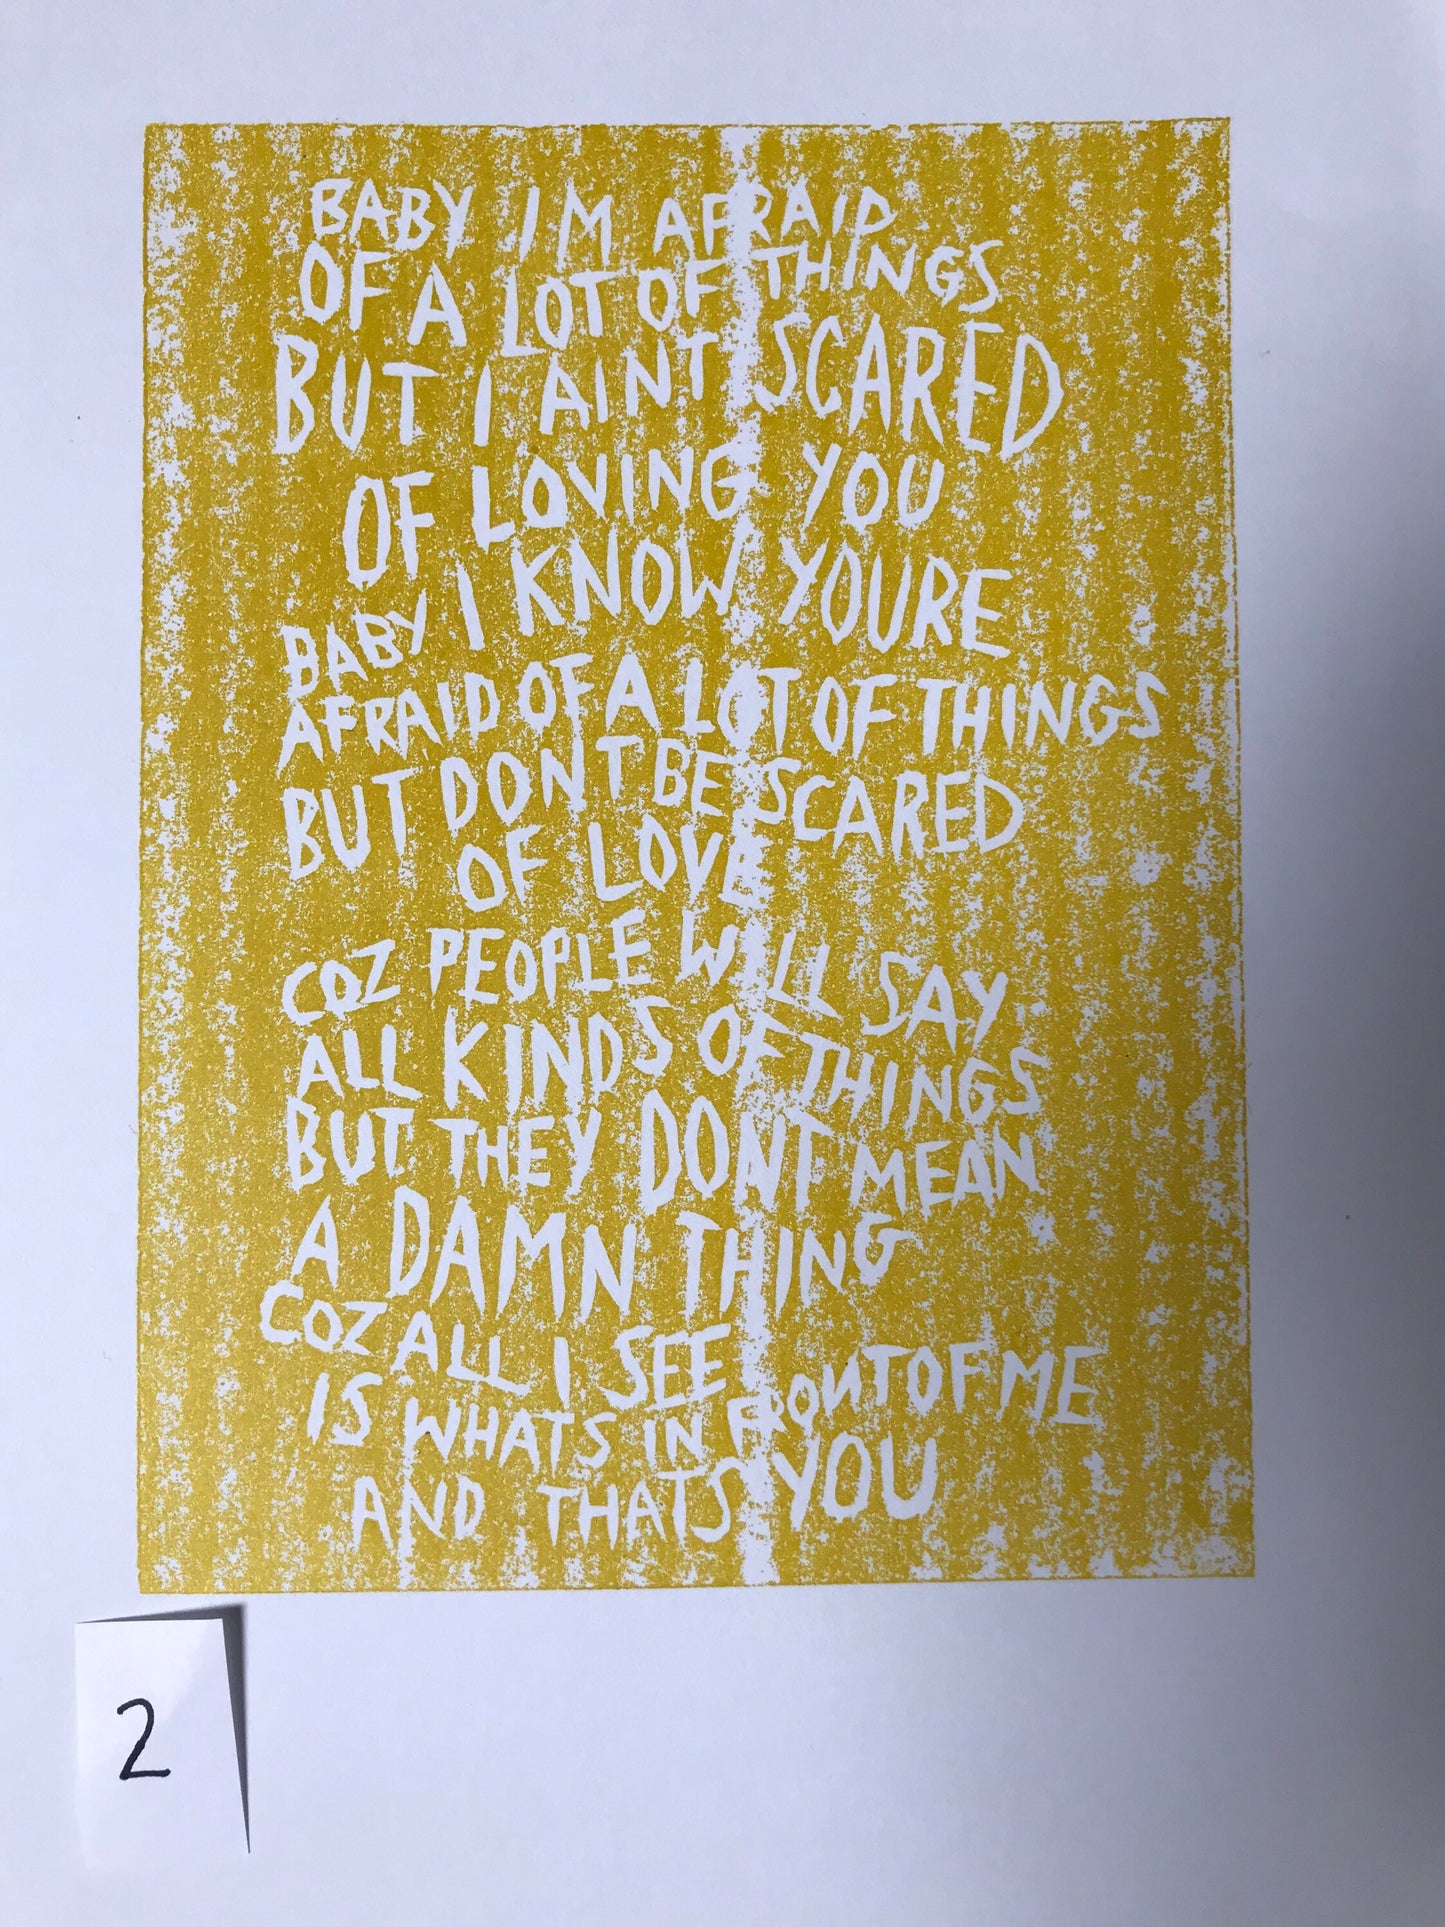 BABY IM AFRAID
OF A LOT OF THINGS
BUT I AINT SCARED
OF LOVING YOU
BABY I KNOW YOURE
AFRAID OF A LOT OF THINGS
BUT DONT BE SCARED
OF LOVE
COZ PEOPLE WILL SAY
ALL KINDS OF THINGS
BUT THEY DONT MEAN
A DAMN THING
COZ ALL I SEE
IS WHATS IN FRONT OF ME
AND THATS YOU
2